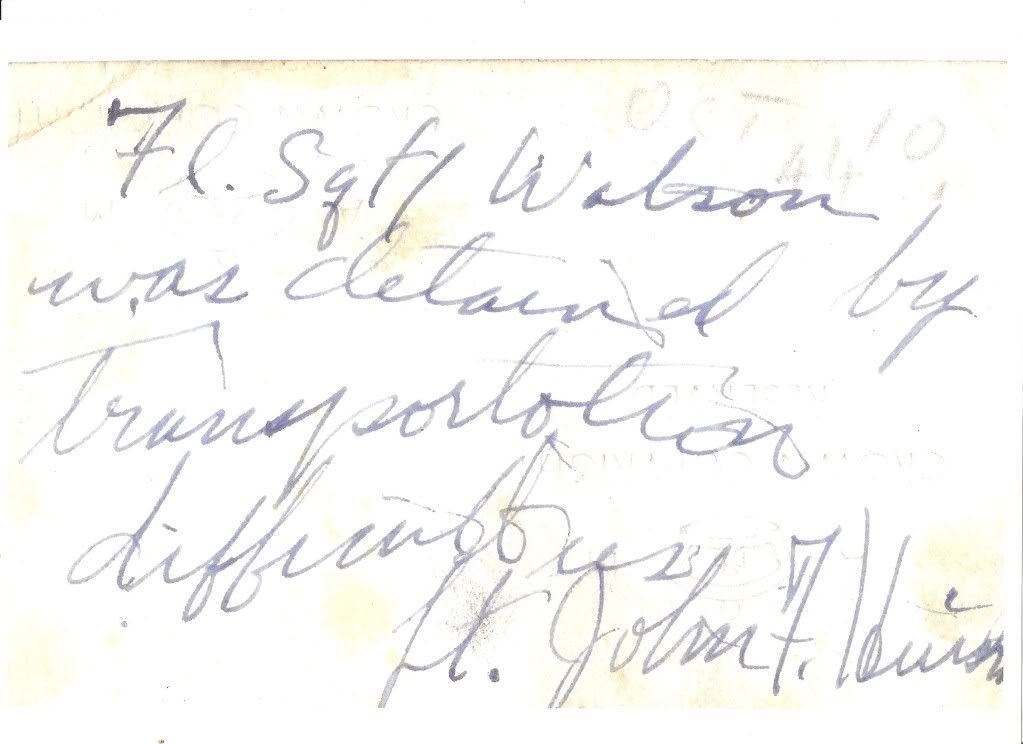 Fl. Sgt/ Watson
was detained by
transportation
difficulties
Lt. John F.